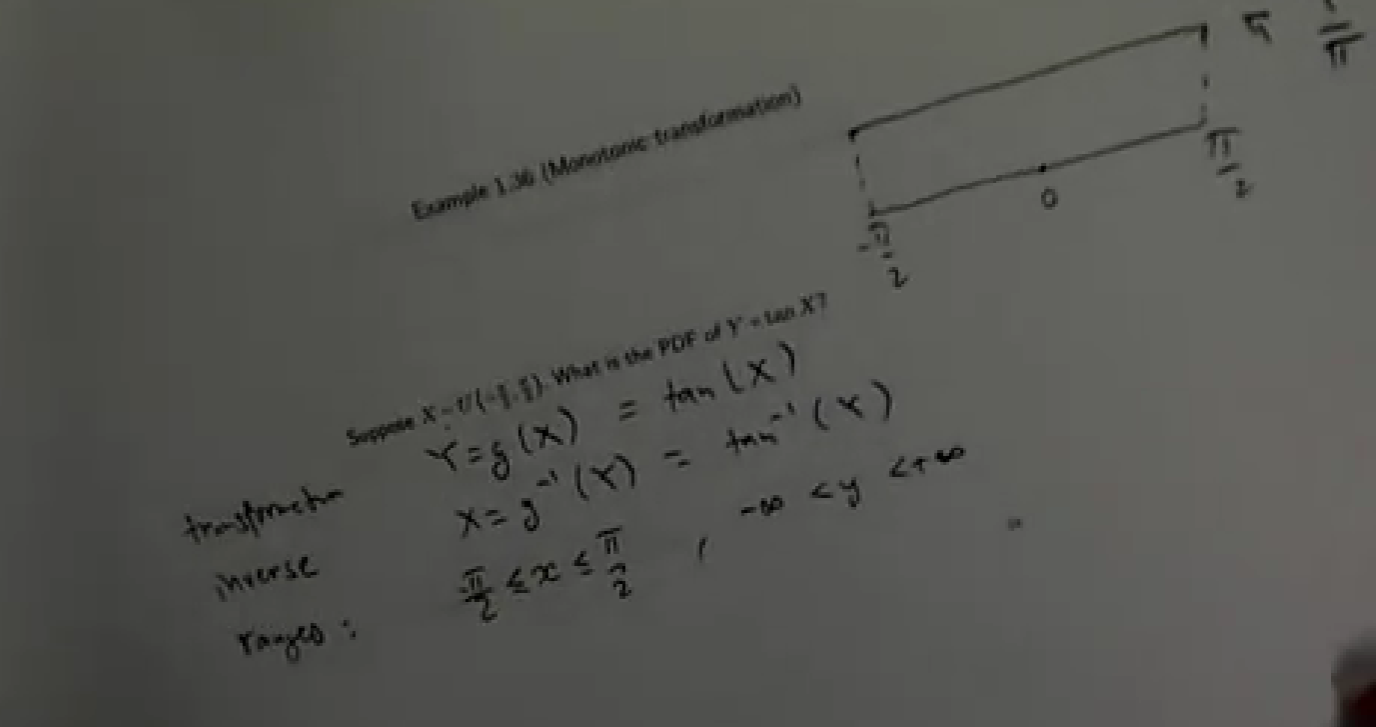 1/π
π/2
0
-π/2
Example 1.36 (Monotonic transformation)
Suppose X ~ U(-π/2, π/2). What is the PDF of Y = tan X?
transformation Y = g(X) = tan(X)
inverse X = g⁻¹(Y) = tan⁻¹(Y)
ranges: -π/2 ≤ x ≤ π/2 , -∞ < y < +∞